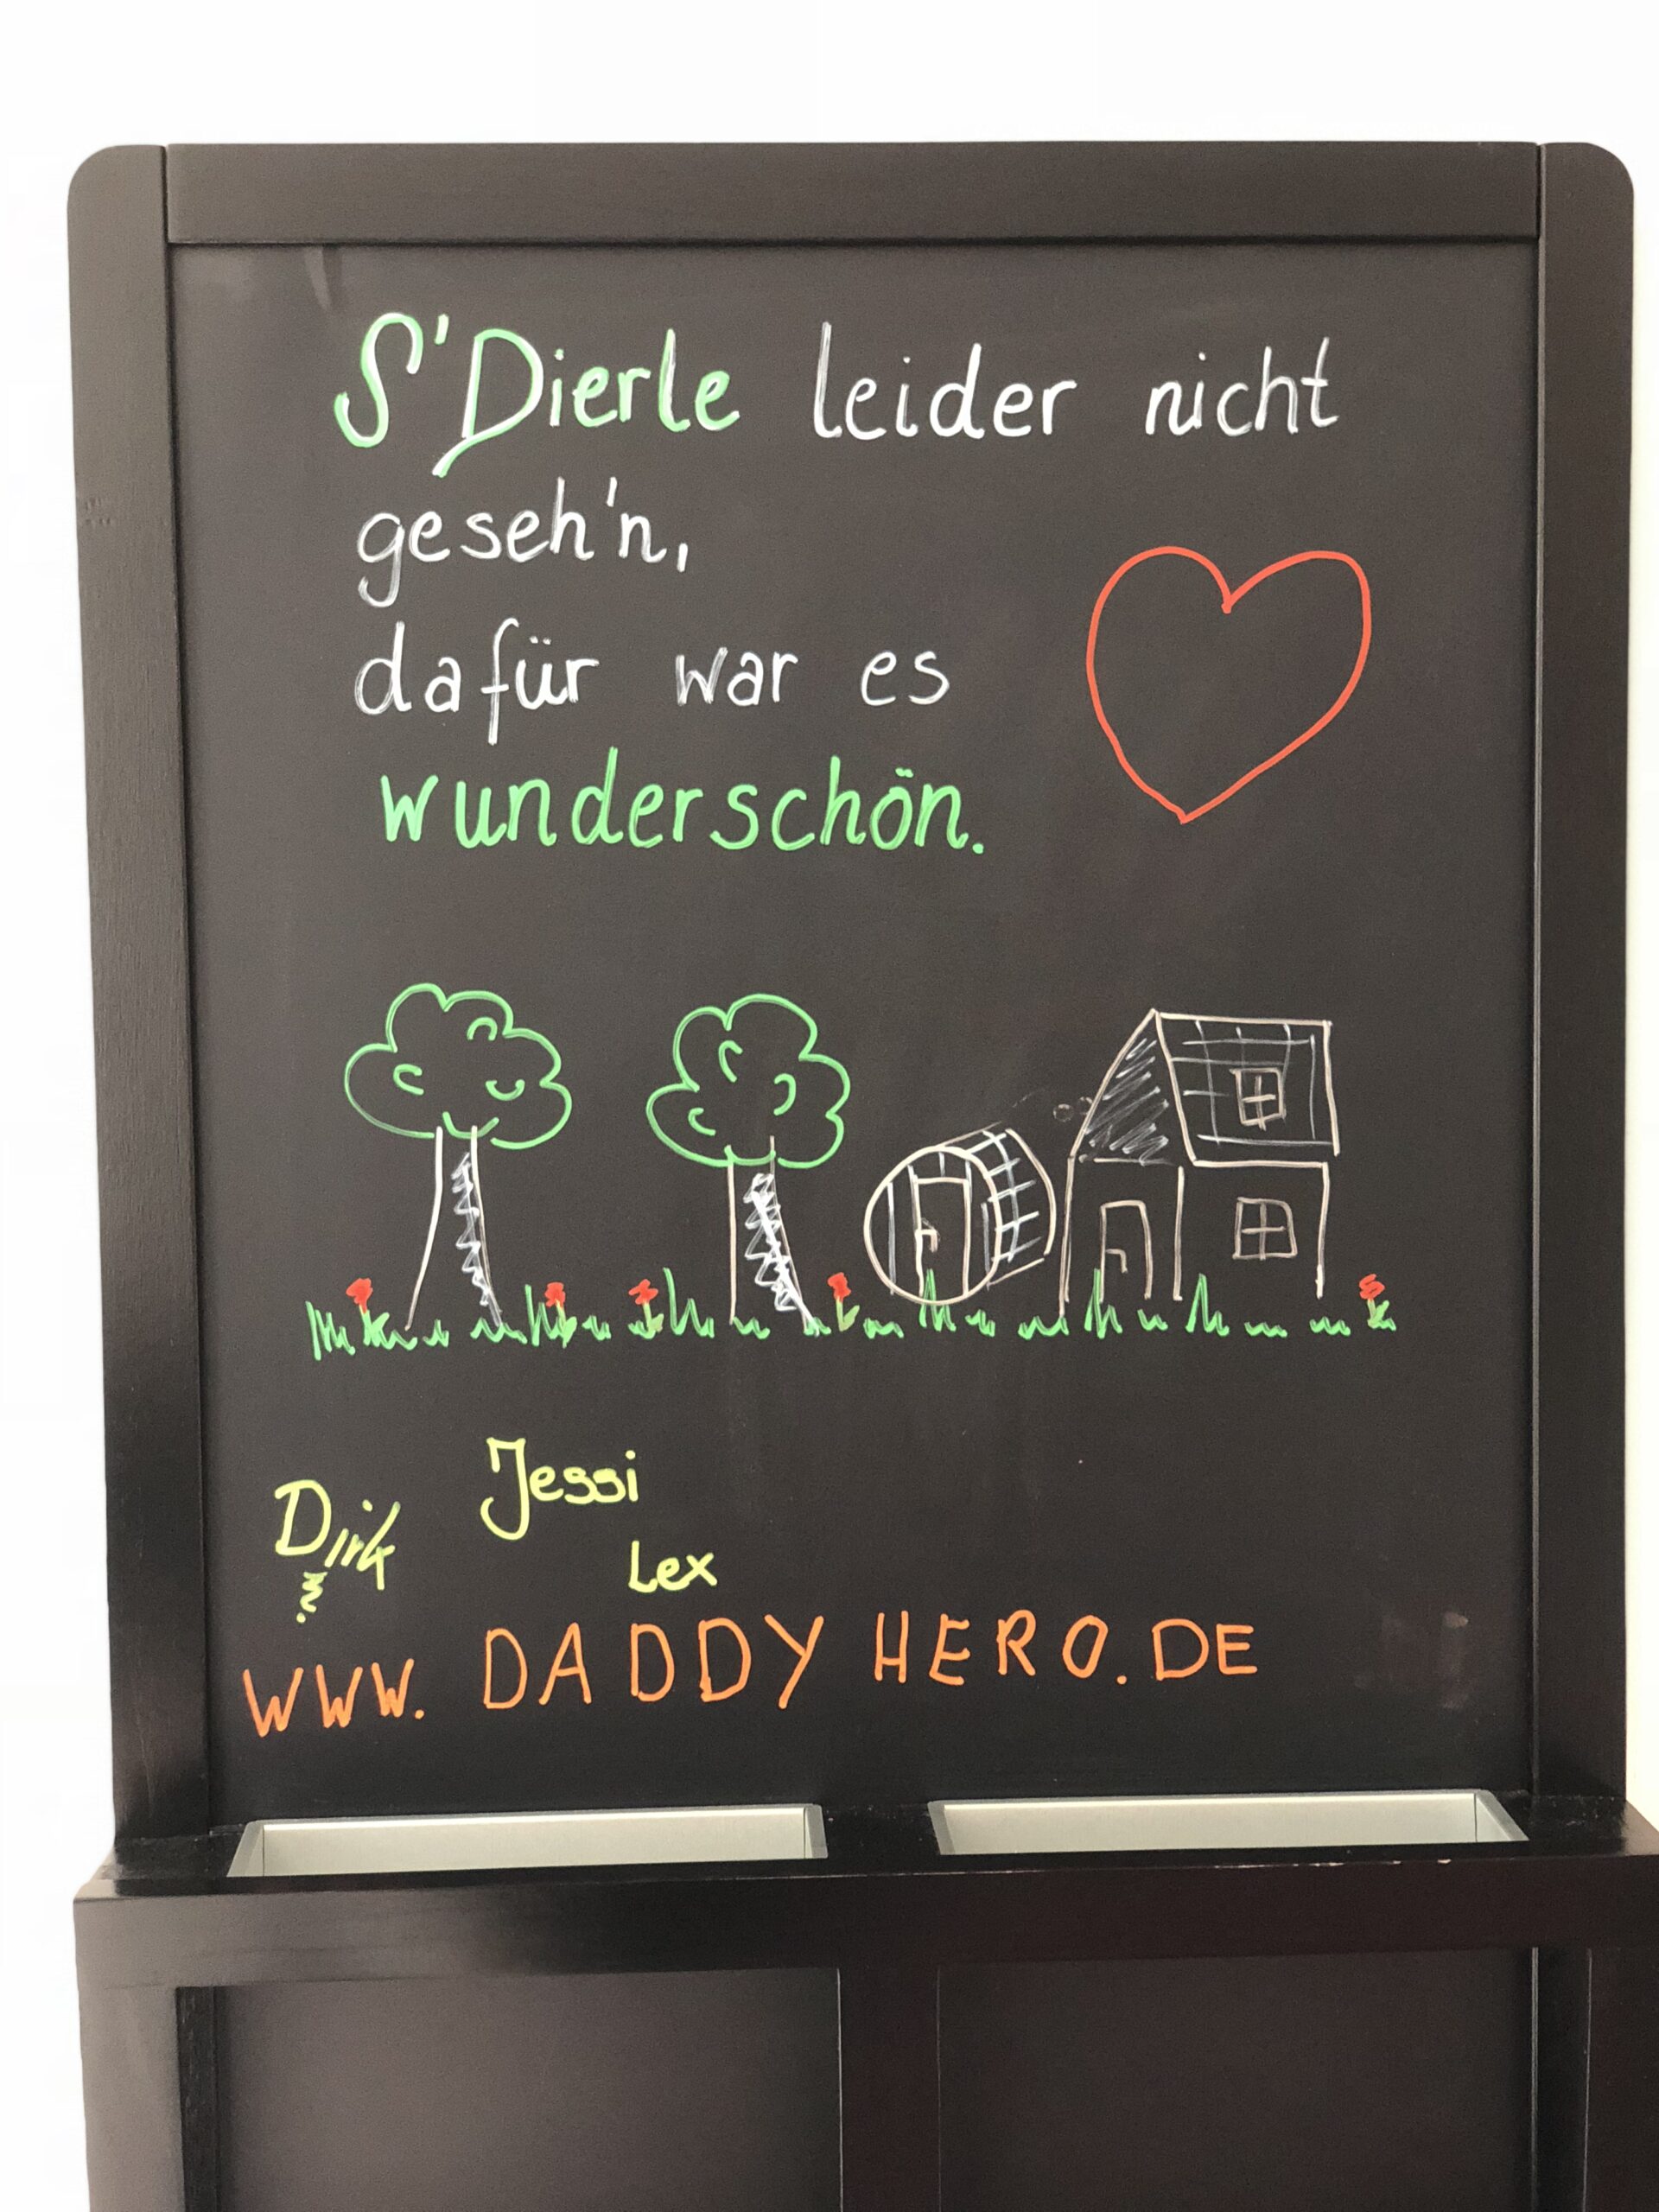 S'Dierle leider nicht
geseh'n,
dafür war es
wunderschön.
Jessi
Dirk
Lex
WWW. DADDY HERO.DE